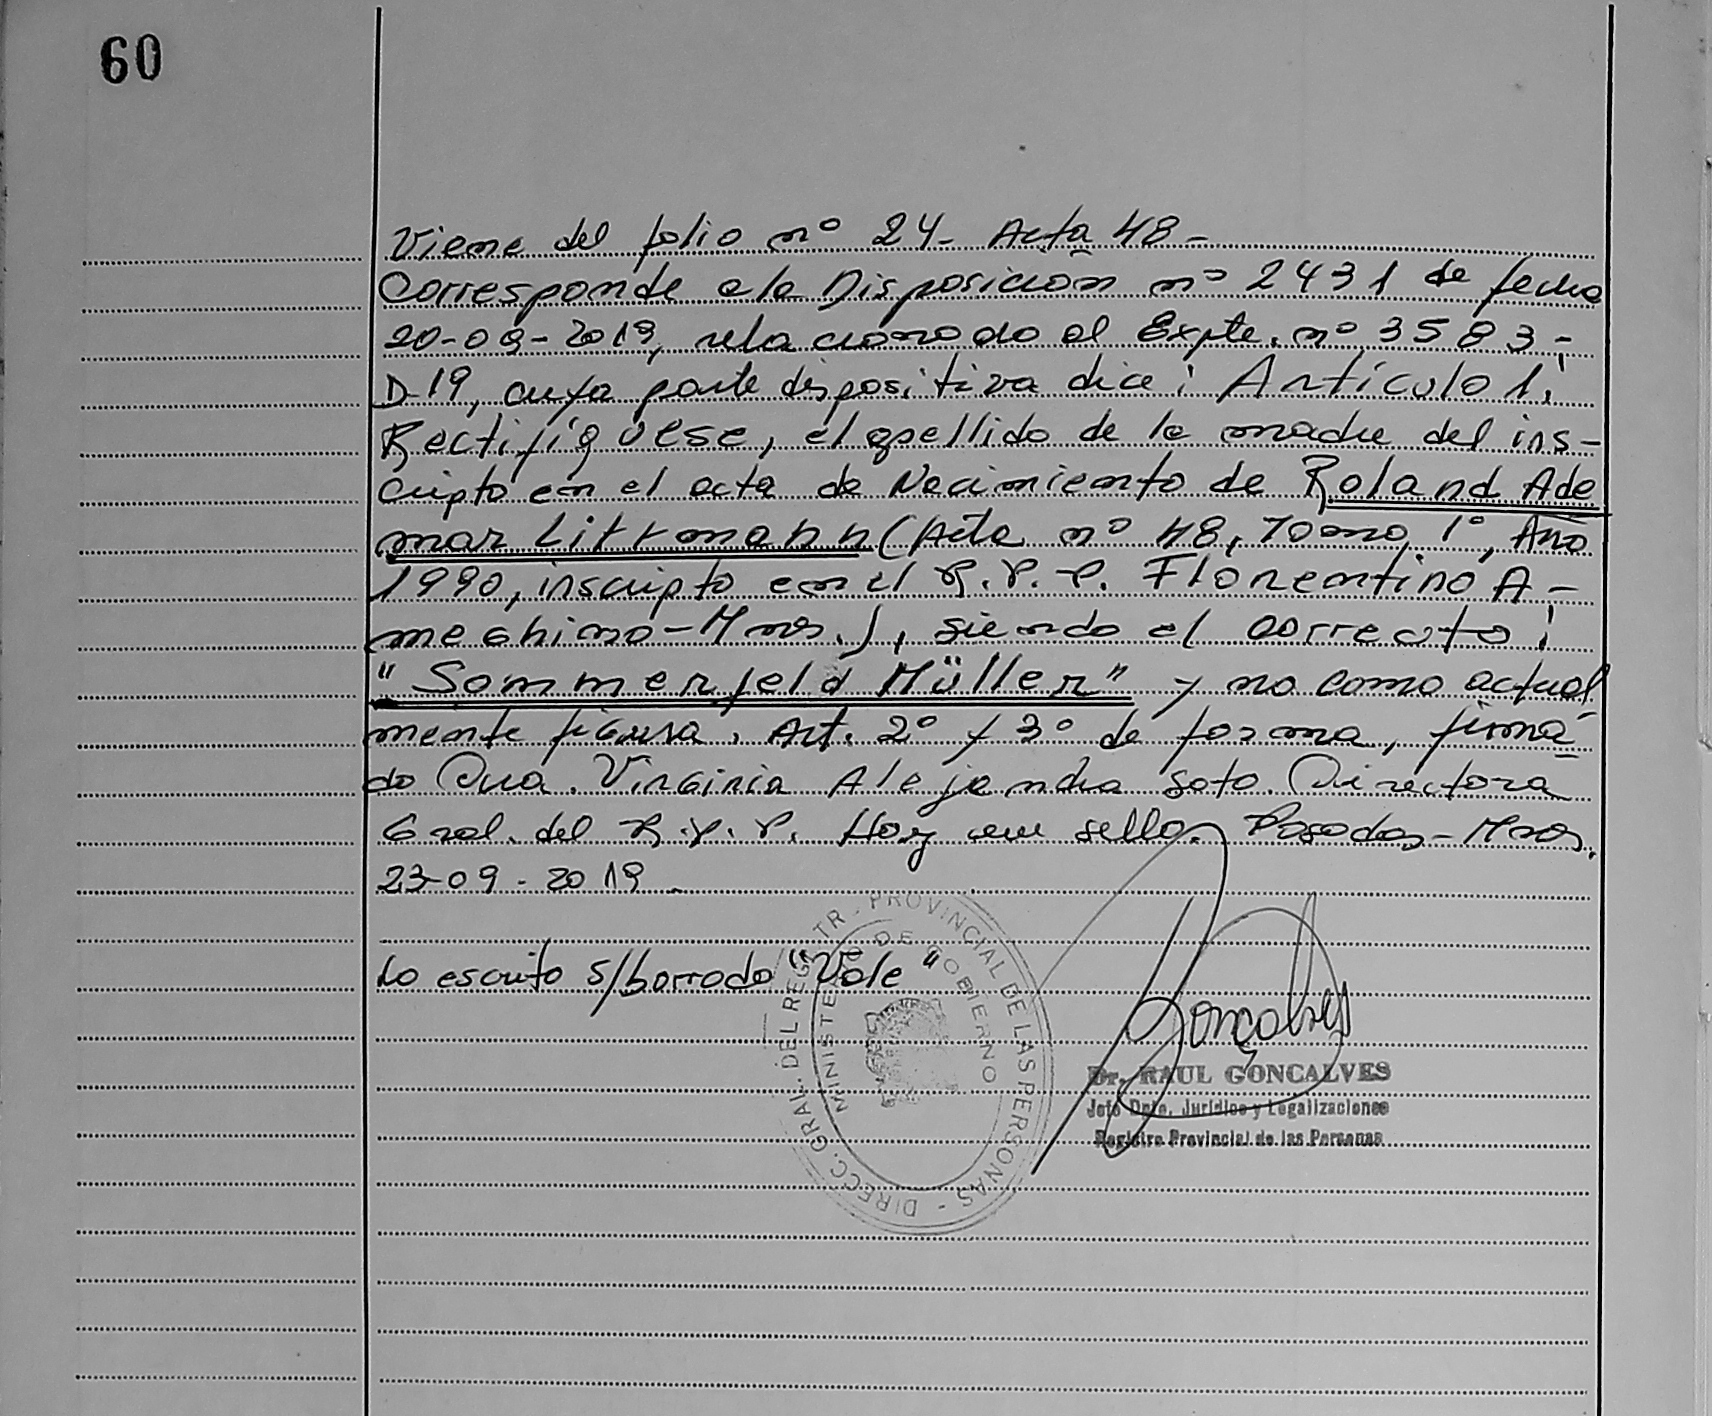 60
Viene del folio nº 24- Acta 48-
Corresponde a la Disposición nº 2431 de fecha
20-09-2019, relacionado al Expte. nº 3583-
D-19, cuya parte dispositiva dice: Artículo 1:
Rectifíquese, el apellido de la madre del ins-
cripto en el acta de Nacimiento de Roland Ade
mar Littmann (Acta nº 48, Tomo 1º, Año
1990, inscripto en el R.P.P. Florentino A-
meghino-Mnes.), siendo el correcto:
"Sommerfeld Müller" y no como actual
mente figura. Art. 2º y 3º de forma, firma-
do Dra. Virginia Alejandra Soto. Directora
Gral. del R.P.P. Hay un sello. Posadas-Mnes.
23-09-2019.
Lo escrito s/borrado "Vale"
DIRECC. GRAL. DEL REGISTR. PROVINCIAL DE LAS PERSONAS -
MINISTERIO DE GOBIERNO
Goncalves
Dr. RAUL GONCALVES
Jefe Dpto. Jurídico y Legalizaciones
Registro Provincial de las Personas